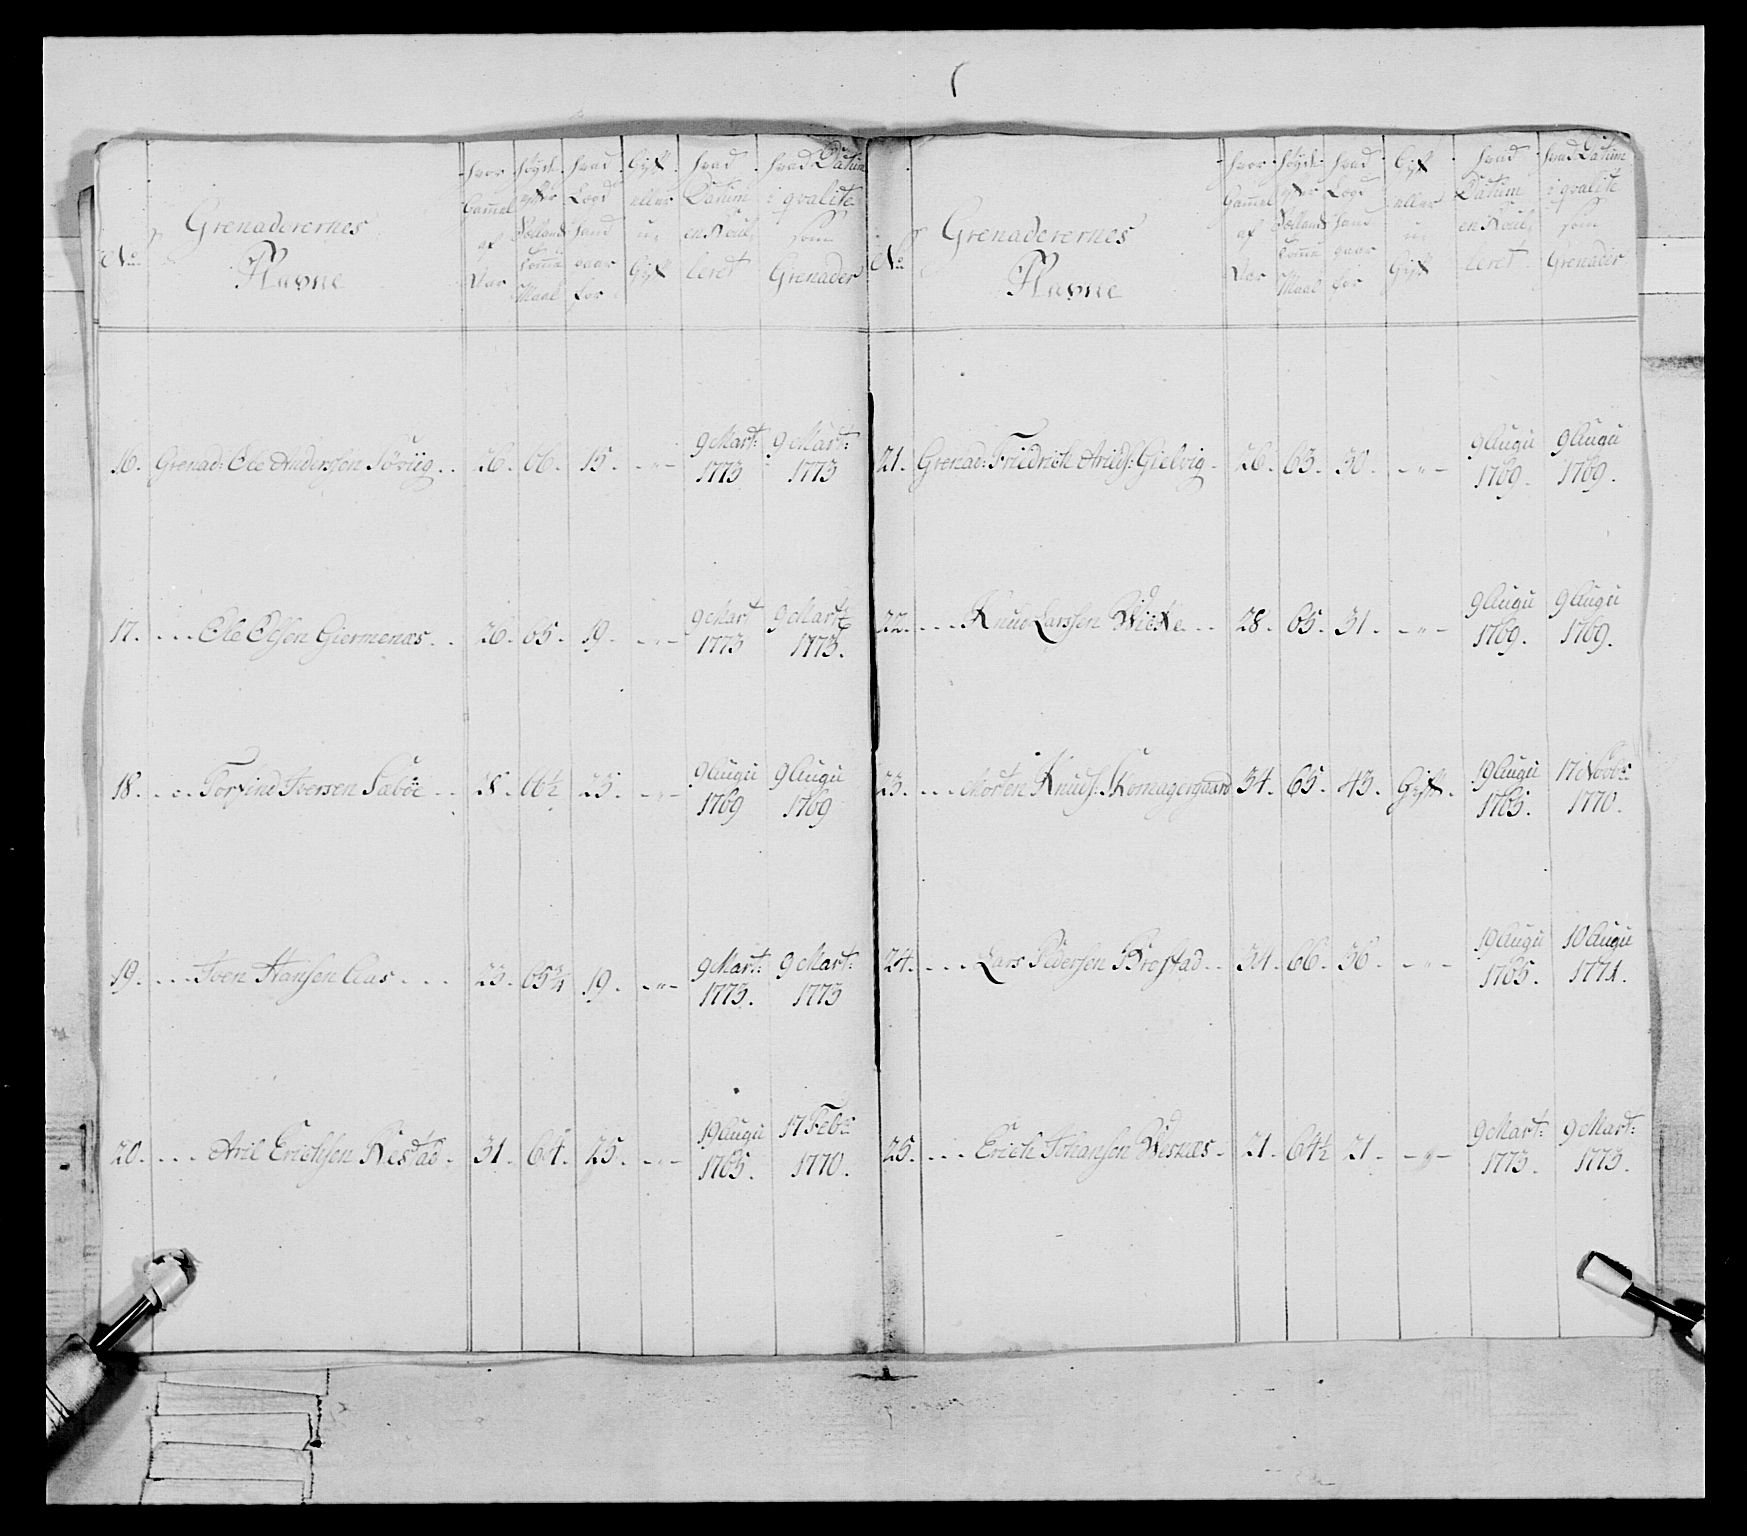 No
Grenaderernes
Navne
hvor Gammel af Aar
høyde efter Rollands Comm Maal
hvad Lægd hand gaar for
Gift eller u: Gift
hvad Datum enRoulleret
hvad Datum i qvalite som Grenader
16. Grenad: Ole Andersen 26. 66. 15. -"- 9 Mart: 1773 9 Mart: 1773
17. . . . Ole Olsen Giermenæs . . 26. 65. 19. -"- 9 Mart 1773 9 Mart: 1773.
18. . . . Torfind Iversen Sabøe . . 28. 66½ 23. -"- 9 Augu 1769 9 Augu 1769
19. . . . Iven Hansen Aas . . . 23. 65¾ 19. -"- 9 Mart: 1773. 9 Mart: 1773
20. . . . Aril Erichsen Restad . 31. 64. 25. -"- 19 Augu 1765. 17 Febr: 1770.
No
Grenaderernes
Navne
hvor Gammel af Aar
høyde efter Rollands Comm Maal
hvad Lægd hand gaar for
Gift eller u: Gift
hvad Datum enRoulleret
hvad Datum i qvalite som Grenader
21. Grenad: Friedrich Arilds: Gielvig . 26. 63. 30. -"- 9 Augu 1769. 9 Augu 1769.
22. . . . Knud Larssen . . 28. 65. 31. -"- 9 Augu 1769. 9 Augu 1769.
23. . . . Morten Knuds: Skomagergaard 34. 65. 43. Gift. 19 Augu 1765. 17 Novbr: 1770.
24. . . . Lars Pedersen Brostad . . 34. 66. 36. -"- 19 Augu 1765. 10 Augu 1771.
25. . . . Erich Johansen Wesnæs . 21. 64½ 21. -"- 9 Mart: 1773. 9 Mart: 1773.